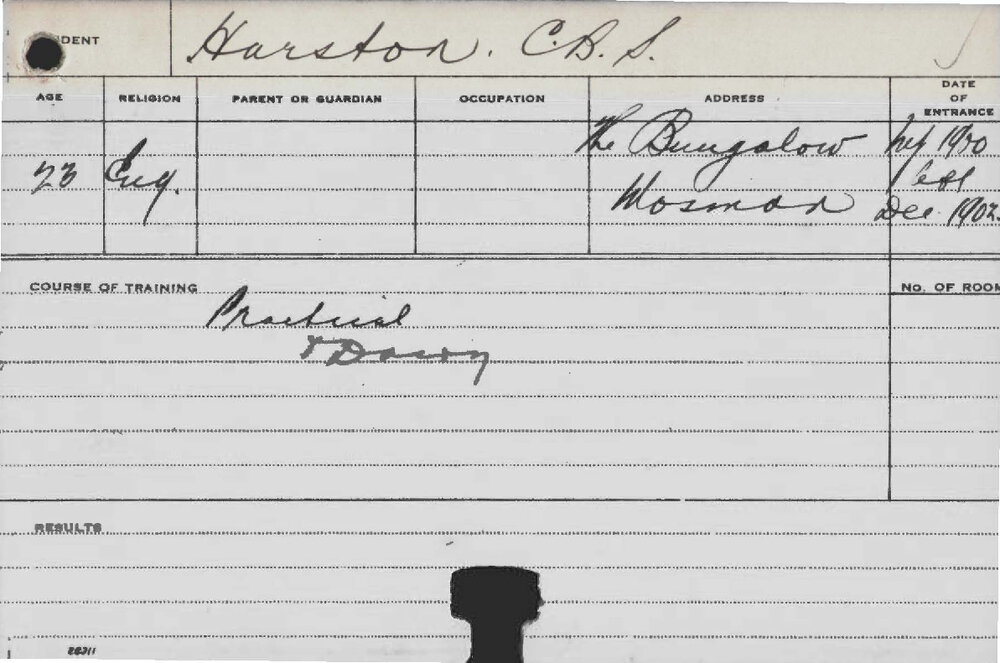 DENT Harston. C.B.S.
AGE RELIGION PARENT OR GUARDIAN OCCUPATION ADDRESS DATE OF ENTRANCE
The Bungalow 1900
23 Eng. left
Mosman Dec 1902.
COURSE OF TRAINING No. OF ROOM
Practical
& Dairy
RESULTS